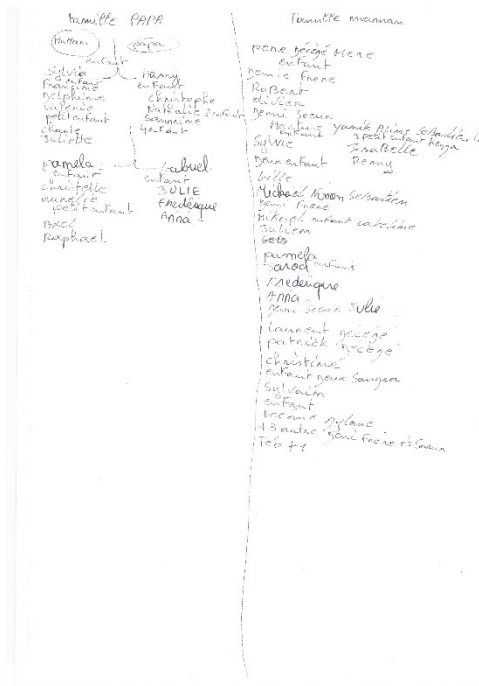 Famille PAPA
maman papa
enfant
Sylvia
enfant
Francine
Delphine
Valérie
petit enfant
Charle
Juliette
Hanny
enfant
Christophe
Nathalie 2 enfant
Sandrine
4 enfant
pamela
enfant
Christelle
petit enfant
Axel
Raphael
Gabriel
enfant
JULIE
Fréderique
Anna
Famille maman
pere Décédé Mere
enfant
Demie Frere
Robert
olivier
Demi soeur
Martine yannik Aline Sebastien
enfant 2 petit enfant Kenza
Sylvie Isabelle
Deux enfant Remy
Gille
Michael Ninon Sebastien
Demi Frere
Mikael enfant
Juliem
pamela
enfant
Fréderique
Anna
Demi Soeur Julie
Laurent Décédé
patrick Décédé
christine
enfant Deux
Sylvain
enfant
Dylane
+3 autre Demi Frere et Soeur
Teo +1